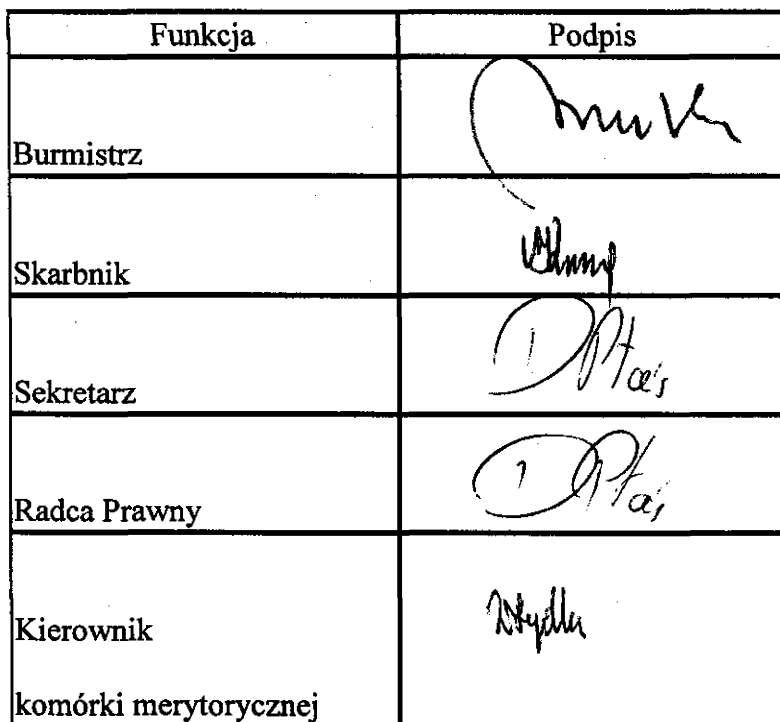 Funkcja Podpis
Burmistrz
Skarbnik
Sekretarz DPtaś
Radca Prawny DPtaś
Kierownik
komórki merytorycznej